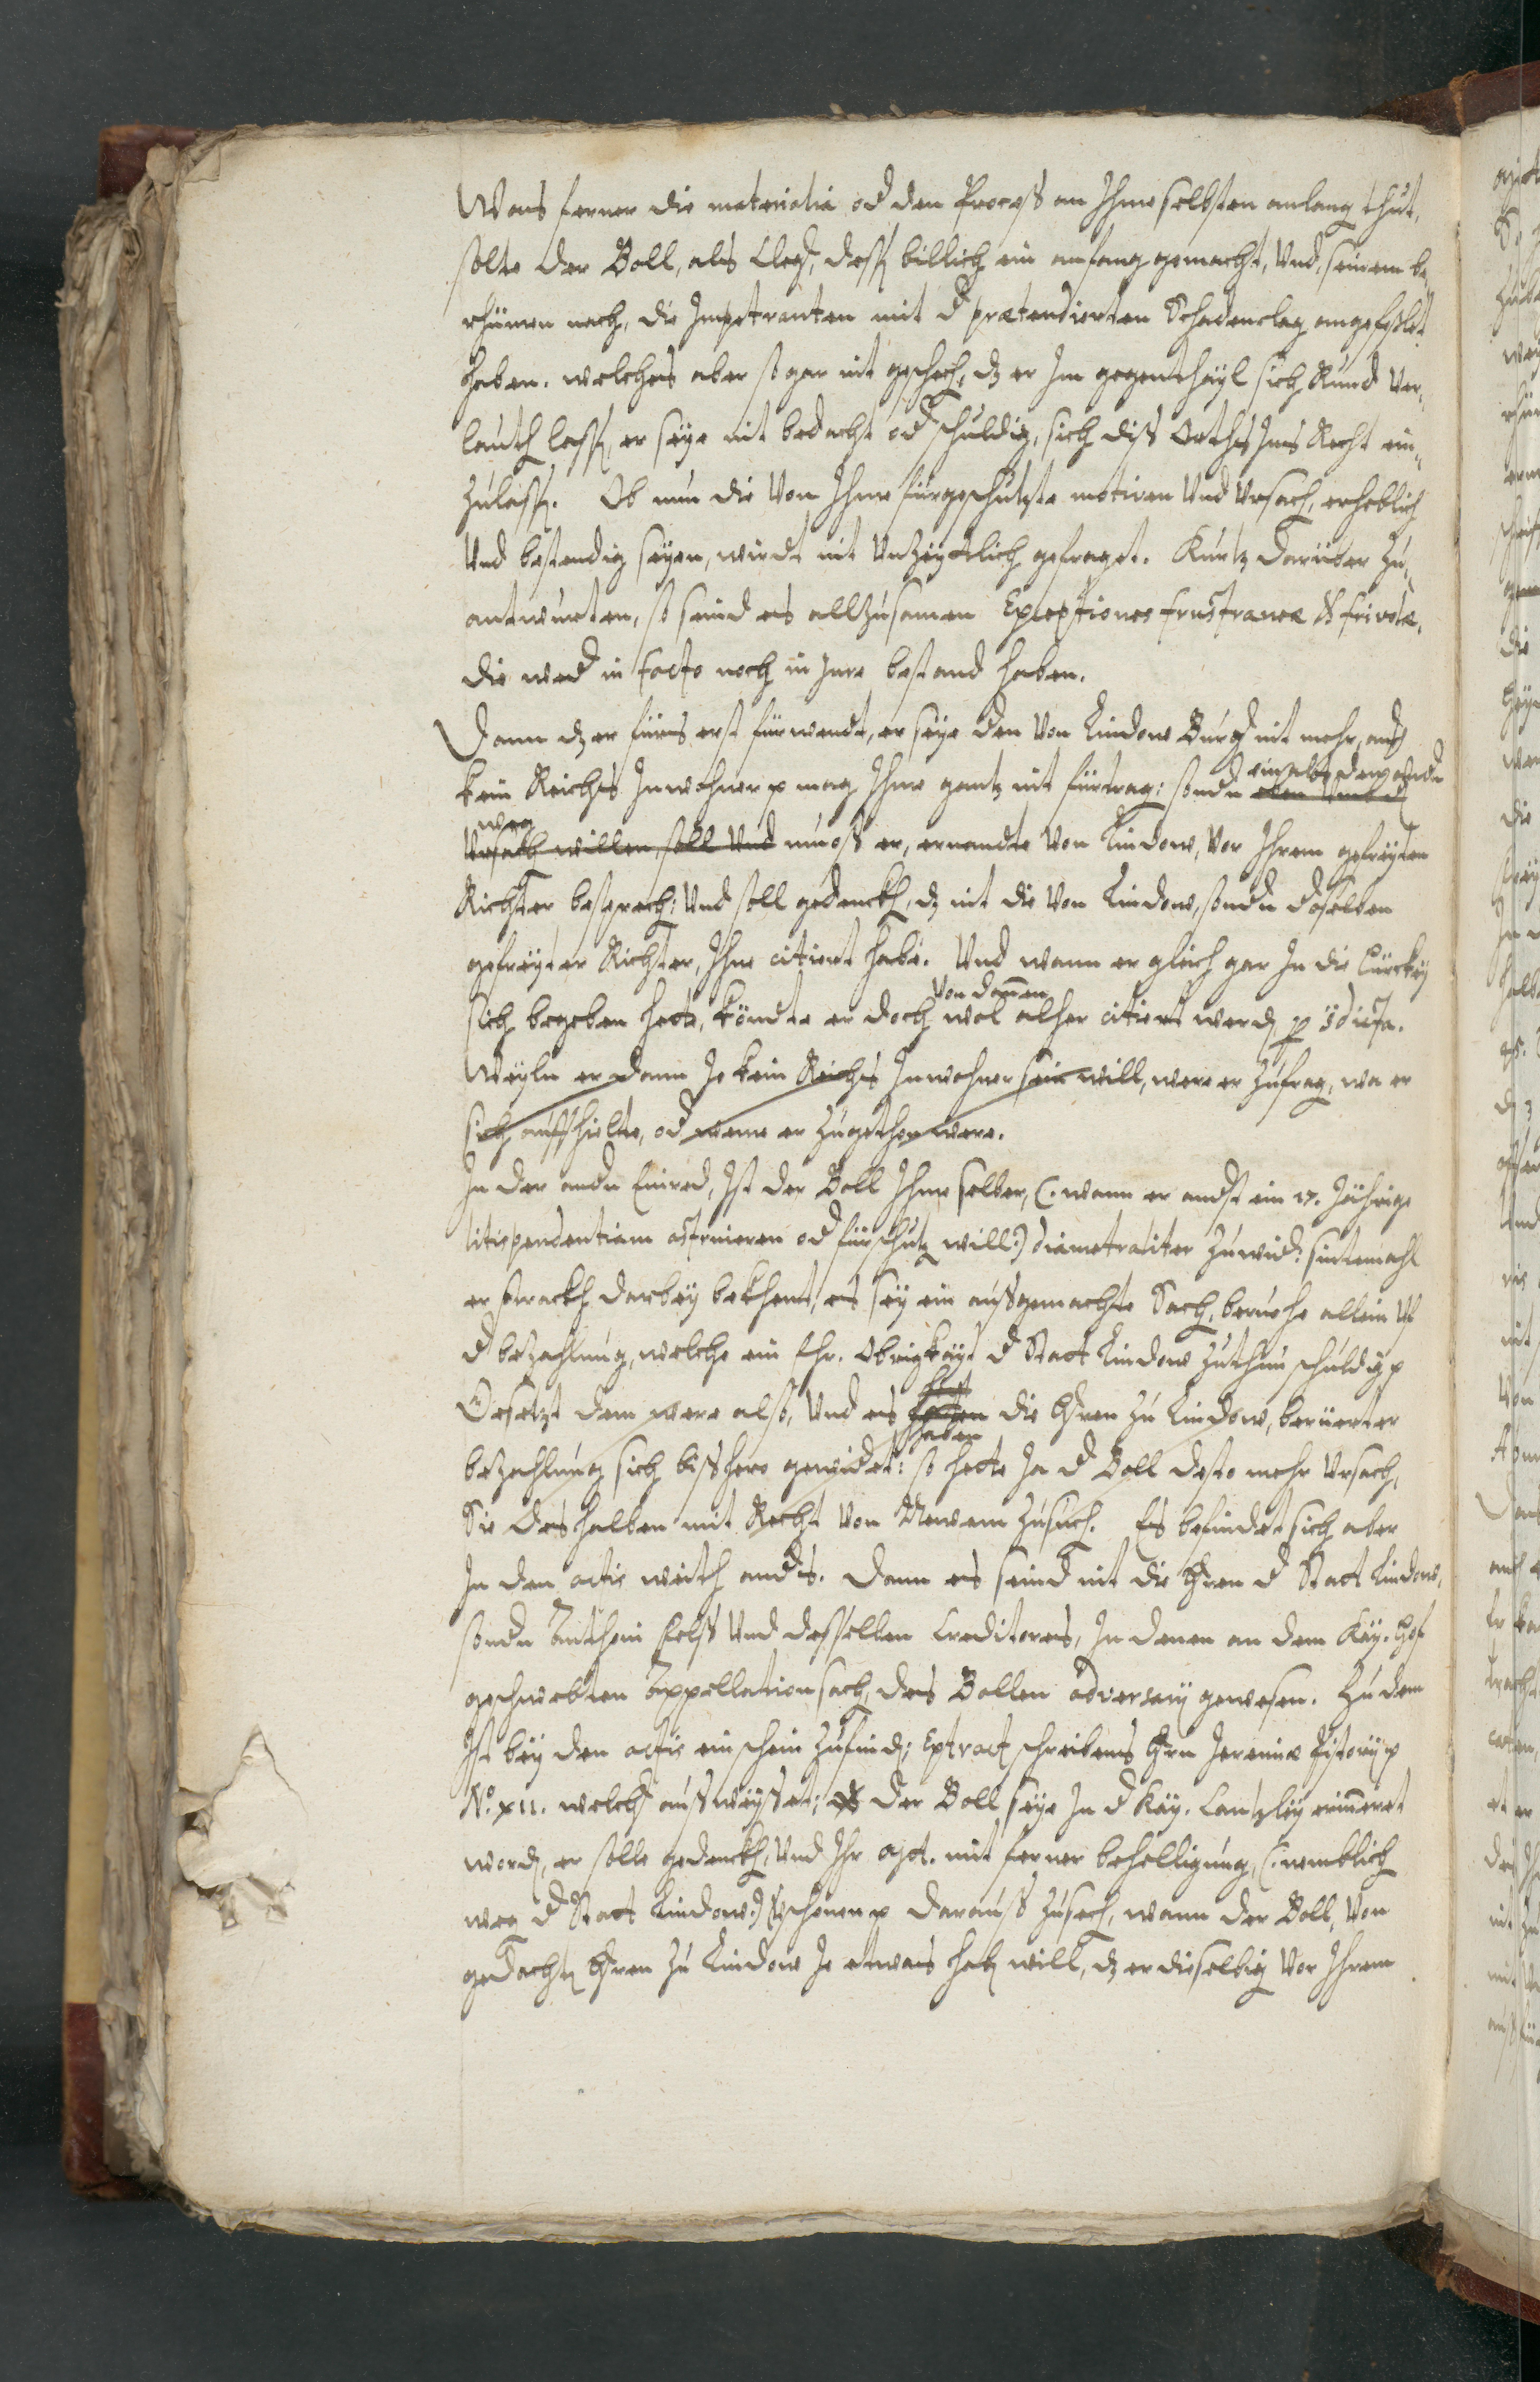 Was ferner die materialia od den Process an Ihme selbsten anlang thut,
solte der Boll, als Cleg, dess billich ein anfang gemacht, Und, seinem be„
rhümen nach, die Impetranten mit d prætendierten Schadenclag angefehlet
haben. welches aber so gar nit geschech, dz er Im gegenthayl sich Rund Ver„
lauth lass, er seye nit bedacht od schuldig, sich diss Orths Ins Recht ein„
zulass. Ob nun die Von Ihme fürgeschützte motiven Und Ursach, erheblich
Und bestendig seyen, wirdt nit Unzeyttlich gefraget. Kurtz darüber zu„
antwurten, so seind es allzusamen Exceptiones frustraneæ & frivolæ,
die wed in facto noch in Jure bestand haben.
Dann dz er fürs erst fürwendt, er seye den Von Lindow Burg nit mehr, auch
kein Reichs Inwohner p mag Ihme gantz nit fürtrag: sondn eben Umb d
weg
Ursach willen, soll Und muoss er, ernandte Von Lindow, Vor Ihrem gefreyten
Richter besprech: Und soll gedenckh, dz nit die Von Lindow, sondn daselben
gefreyter Richter, Ihne citiert habe. Und wann er gleich gar In die Türckey
Von dannen
sich begeben hette, köndte er doch wol alher citiert werd p edicta.
Weyln er dann Je kein Reichs Inwohner sein will, were er zufrag, wa er
sich auffhielte, od weme er zugethon were.
In der andn Einred, Ist der Boll Ihme selber, (: wann er andst ein 17. Jährige
litispendentiam astruieren od fürschütz will:) diametraliter zuwid: sintemahl
er strackh darbey bekhent, es sey ein aussgemachte Sach, beruohe allein uf
d bezahlung, welche ein Ehr. Obrigkayt d Statt Lindow zuthun schuldig p
Gesetzt dem were also, Und es hetten die Hren zu Lindow, berüerter
haben
bezahlung sich bisshero gewidet: so hette Ja d Boll desto mehr Ursach,
Sie deshalben mit Recht Von Newem zusuch. Es befindet sich aber
In den actis weith ands. Dann es seind nit die Hren d Statt Lindow,
sondn Anthoni Fels Und desselben Creditores, In denen an dem Kay. Hof
geschwebten Appellationsach, des Bollen adversarij gewesen. Zu dem
Ist bey den actis ein schein zufind, Extract schreibens Hrn Jeremiæ Pistorij p
No. XII. welch aussweysset; dz der Boll seye In d Kay. Cantzley erinneret
word, er solle gedenckh, Und Ihr Mt. mit ferner behelligung, (: nemblich
weg d Statt Lindow:) Vschonen p darauss zusech, wann der Boll, Von
gedacht Hren zu Lindow Je etwas hab will, dz er dieselbig Vor Ihrem